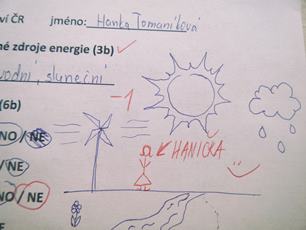 ví ČR jméno: Hanka Tomaníková
né zdroje energie (3b)
vodní, sluneční
(6b)
-1
NO / NE
HANIČKA
/ NE
NO / NE